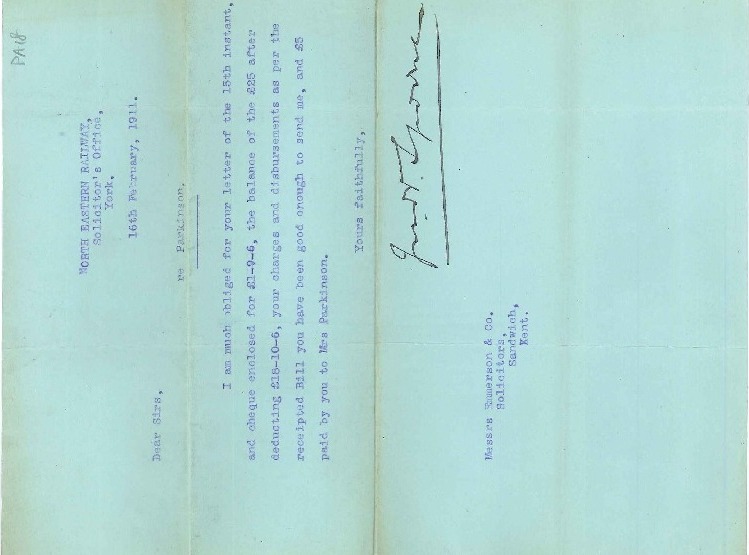 PA18
NORTH EASTERN RAILWAY,
Solicitor's Office,
York.
16th February, 1911.
Dear Sirs,
re Parkinson.
I am much obliged for your letter of the 15th instant,
and cheque enclosed for £1-9-6, the balance of the £25 after
deducting £18-10-6, your charges and disbursements as per the
receipted Bill you have been good enough to send me, and £5
paid by you to Mrs Parkinson.
Yours faithfully,
Messrs Emmerson & Co.
Solicitors,
Sandwich,
Kent.